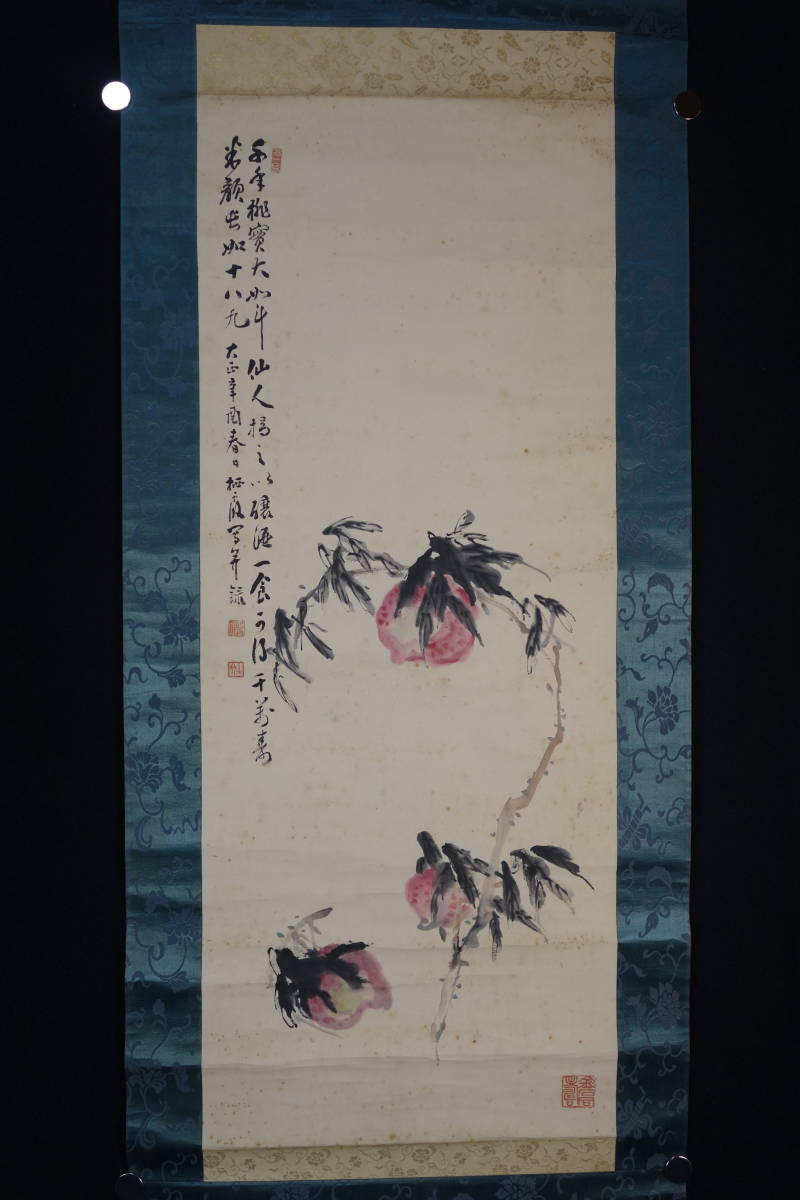 千年桃實大如斗仙人摘之以釀酒一食可得千萬壽
朱顏長如十八九 大正辛酉春日栖霞写并録